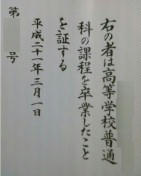 右の者は高等学校普通
科の課程を卒業したこと
を証する
平成二十一年三月一日
第　　号